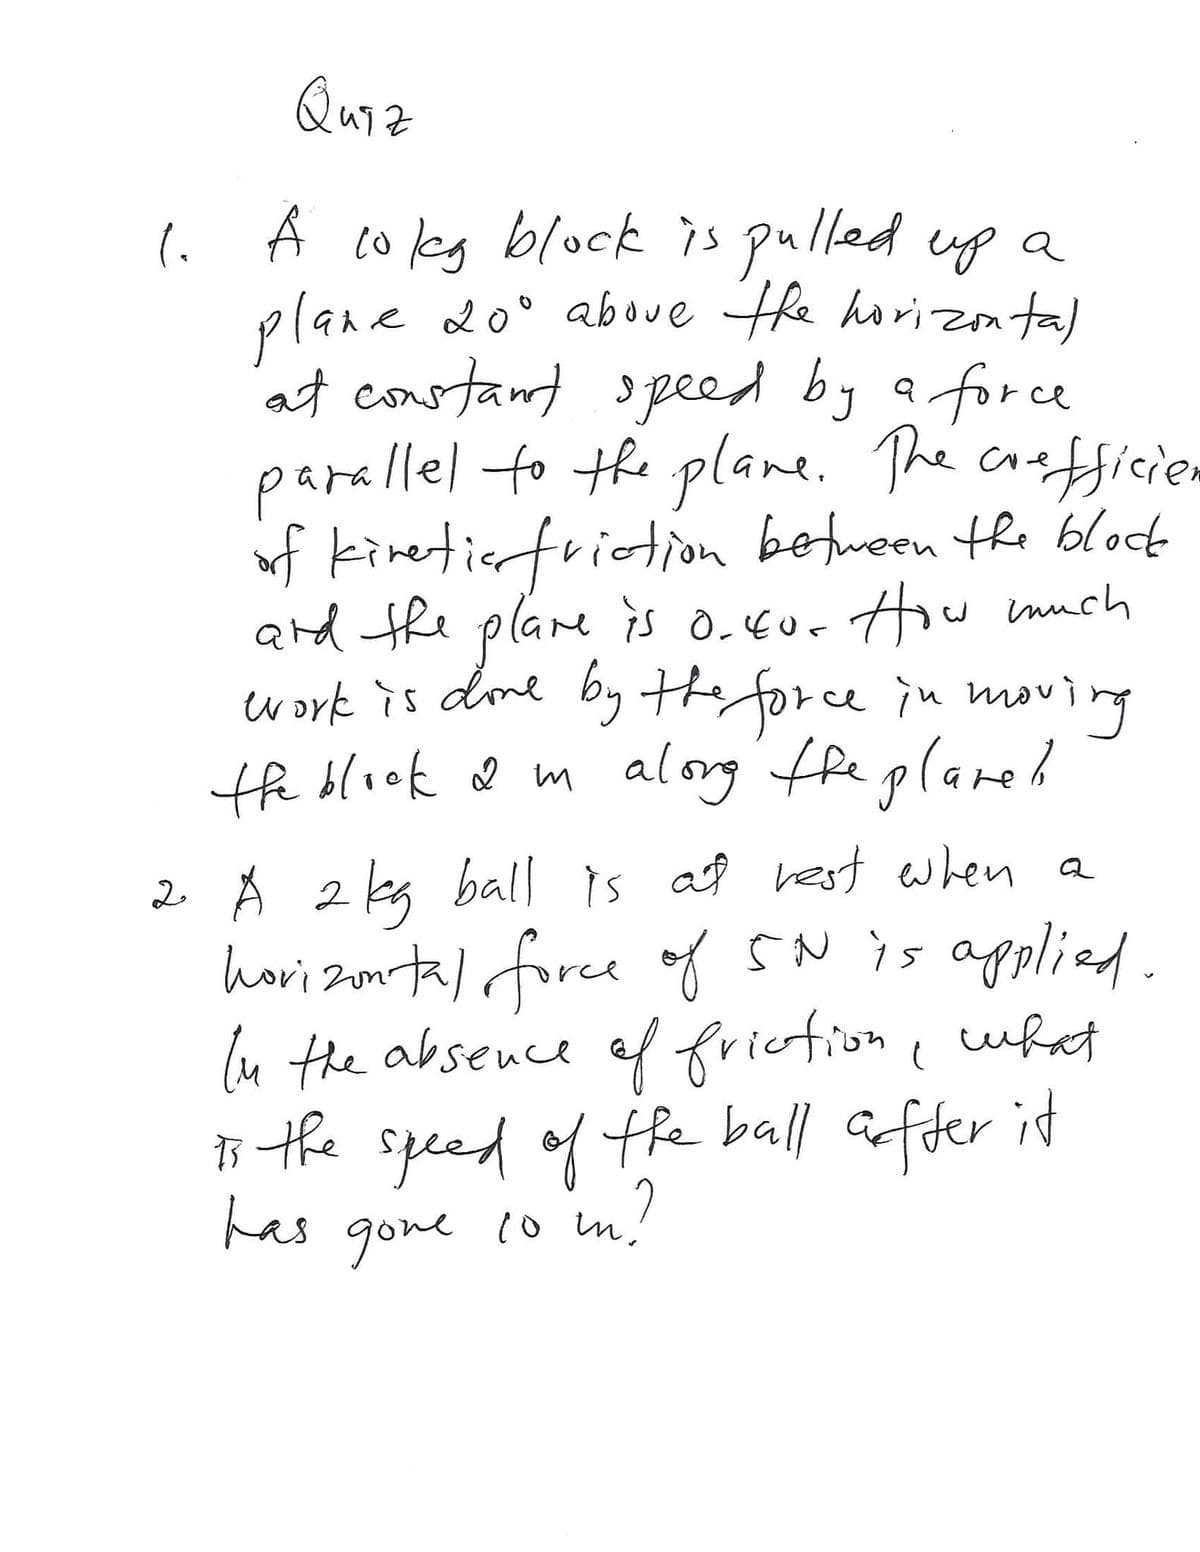 Quiz
1. A 10 kg block is pulled up a
plane 20° above the horizontal
at constant speed by a force
parallel to the plane. The coefficien
of kinetic friction between the block
and the plane is 0.40. How much
work is done by the force in moving
the block 2 m along the plane?
2. A 2 kg ball is at rest when a
horizontal force of 5 N is applied.
In the absence of friction, what
is the speed of the ball after it
has gone 10 m?